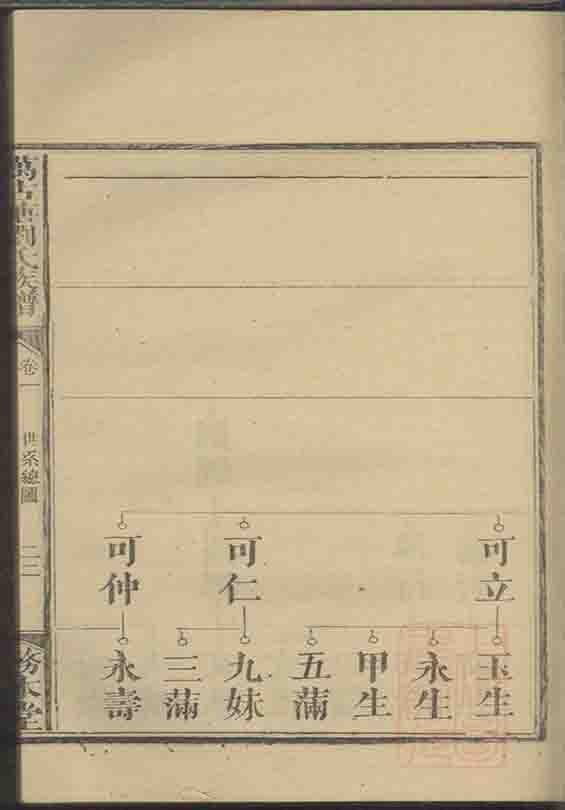 可立
玉生
永生
甲生
五滿
可仁
九妹
三滿
可仲
永壽
劉氏族譜
卷一
世系總圖
務本堂